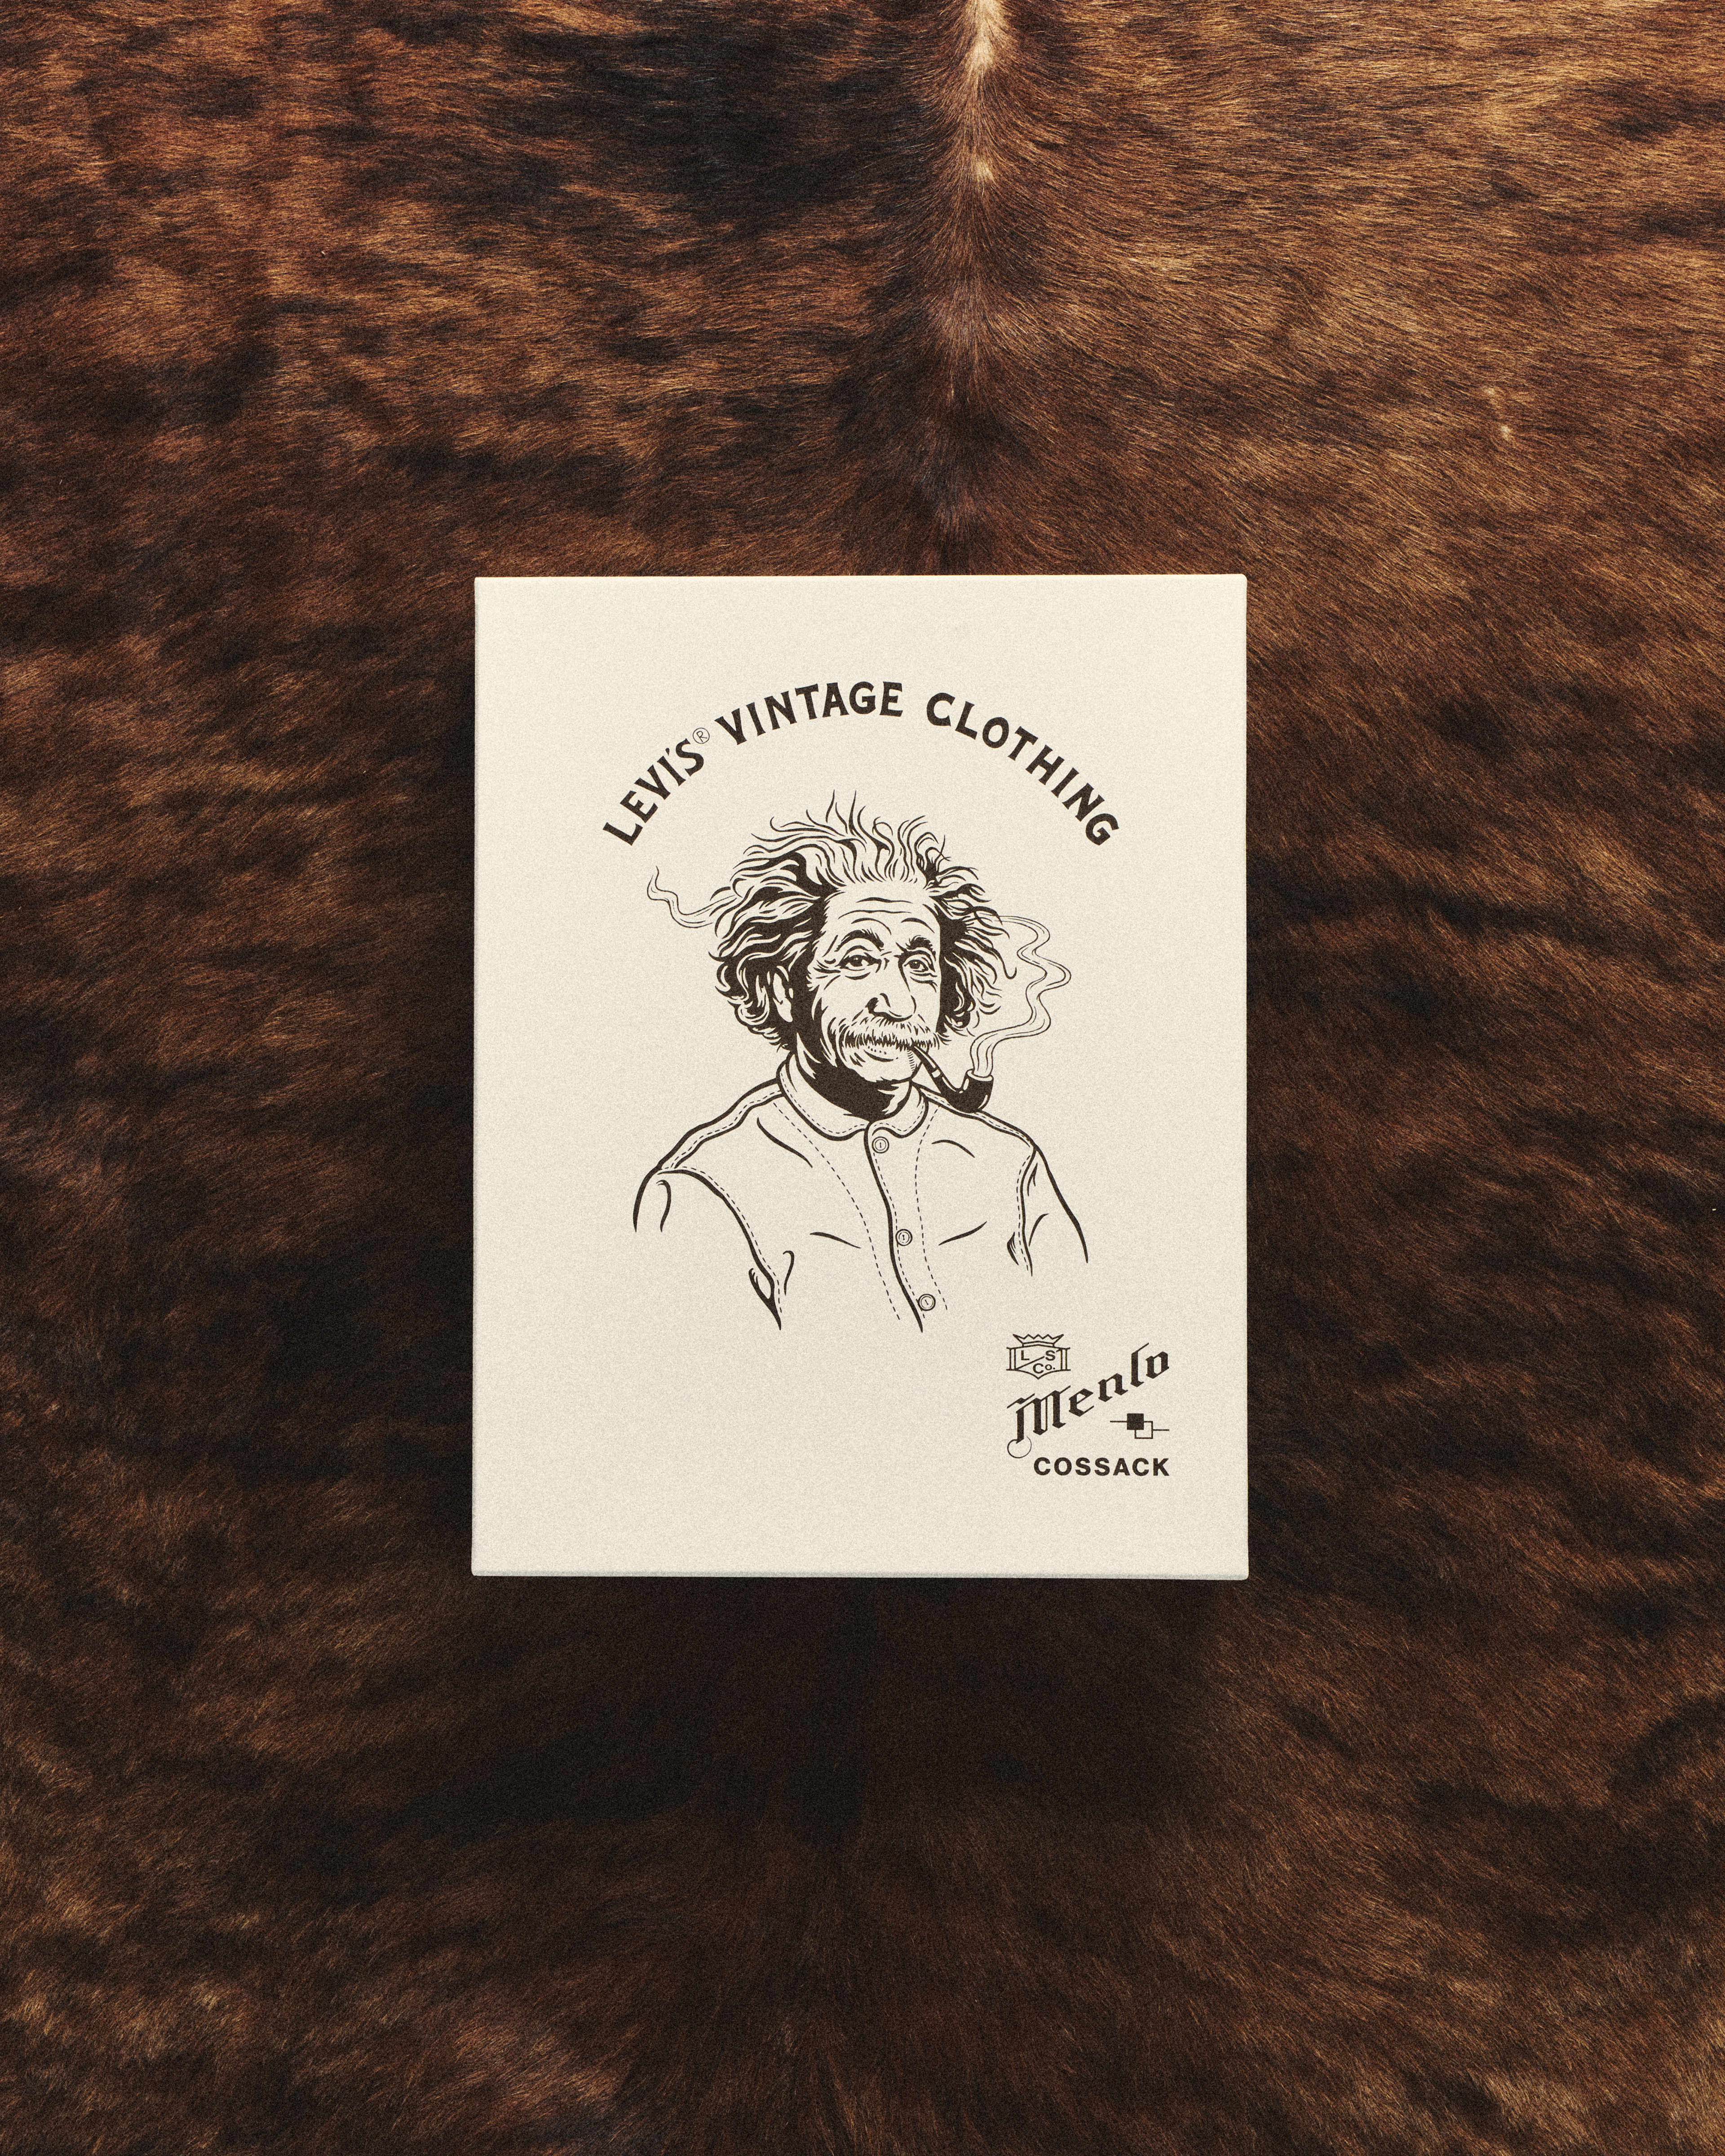 LEVI'S® VINTAGE CLOTHING
L S
Co.
Menlo
COSSACK